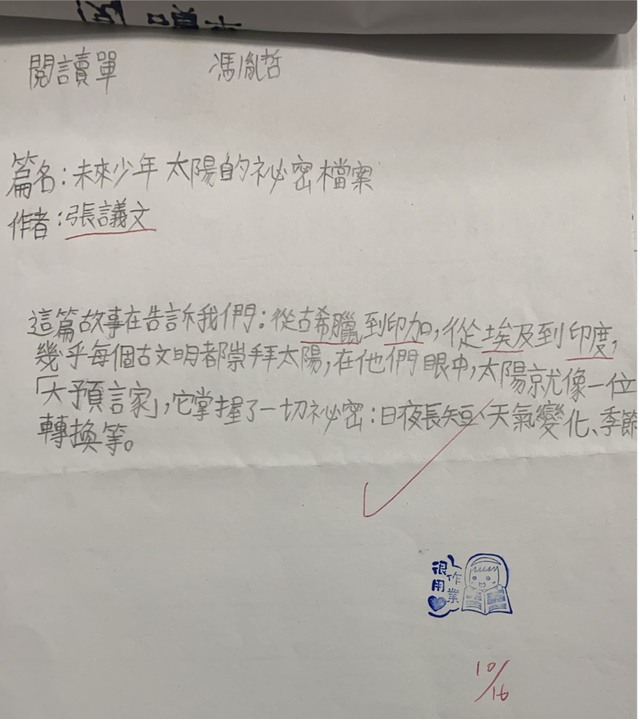 閱讀單 馮胤哲
篇名:未來少年 太陽的祕密檔案
作者:張議文
這篇故事在告訴我們:從古希臘到印加,從埃及到印度,
幾乎每個古文明都崇拜太陽,在他們眼中,太陽就像一位
「大預言家」,它掌握了一切祕密:日夜長短、天氣變化、季節
轉換等。
很用♥
作業
10/16